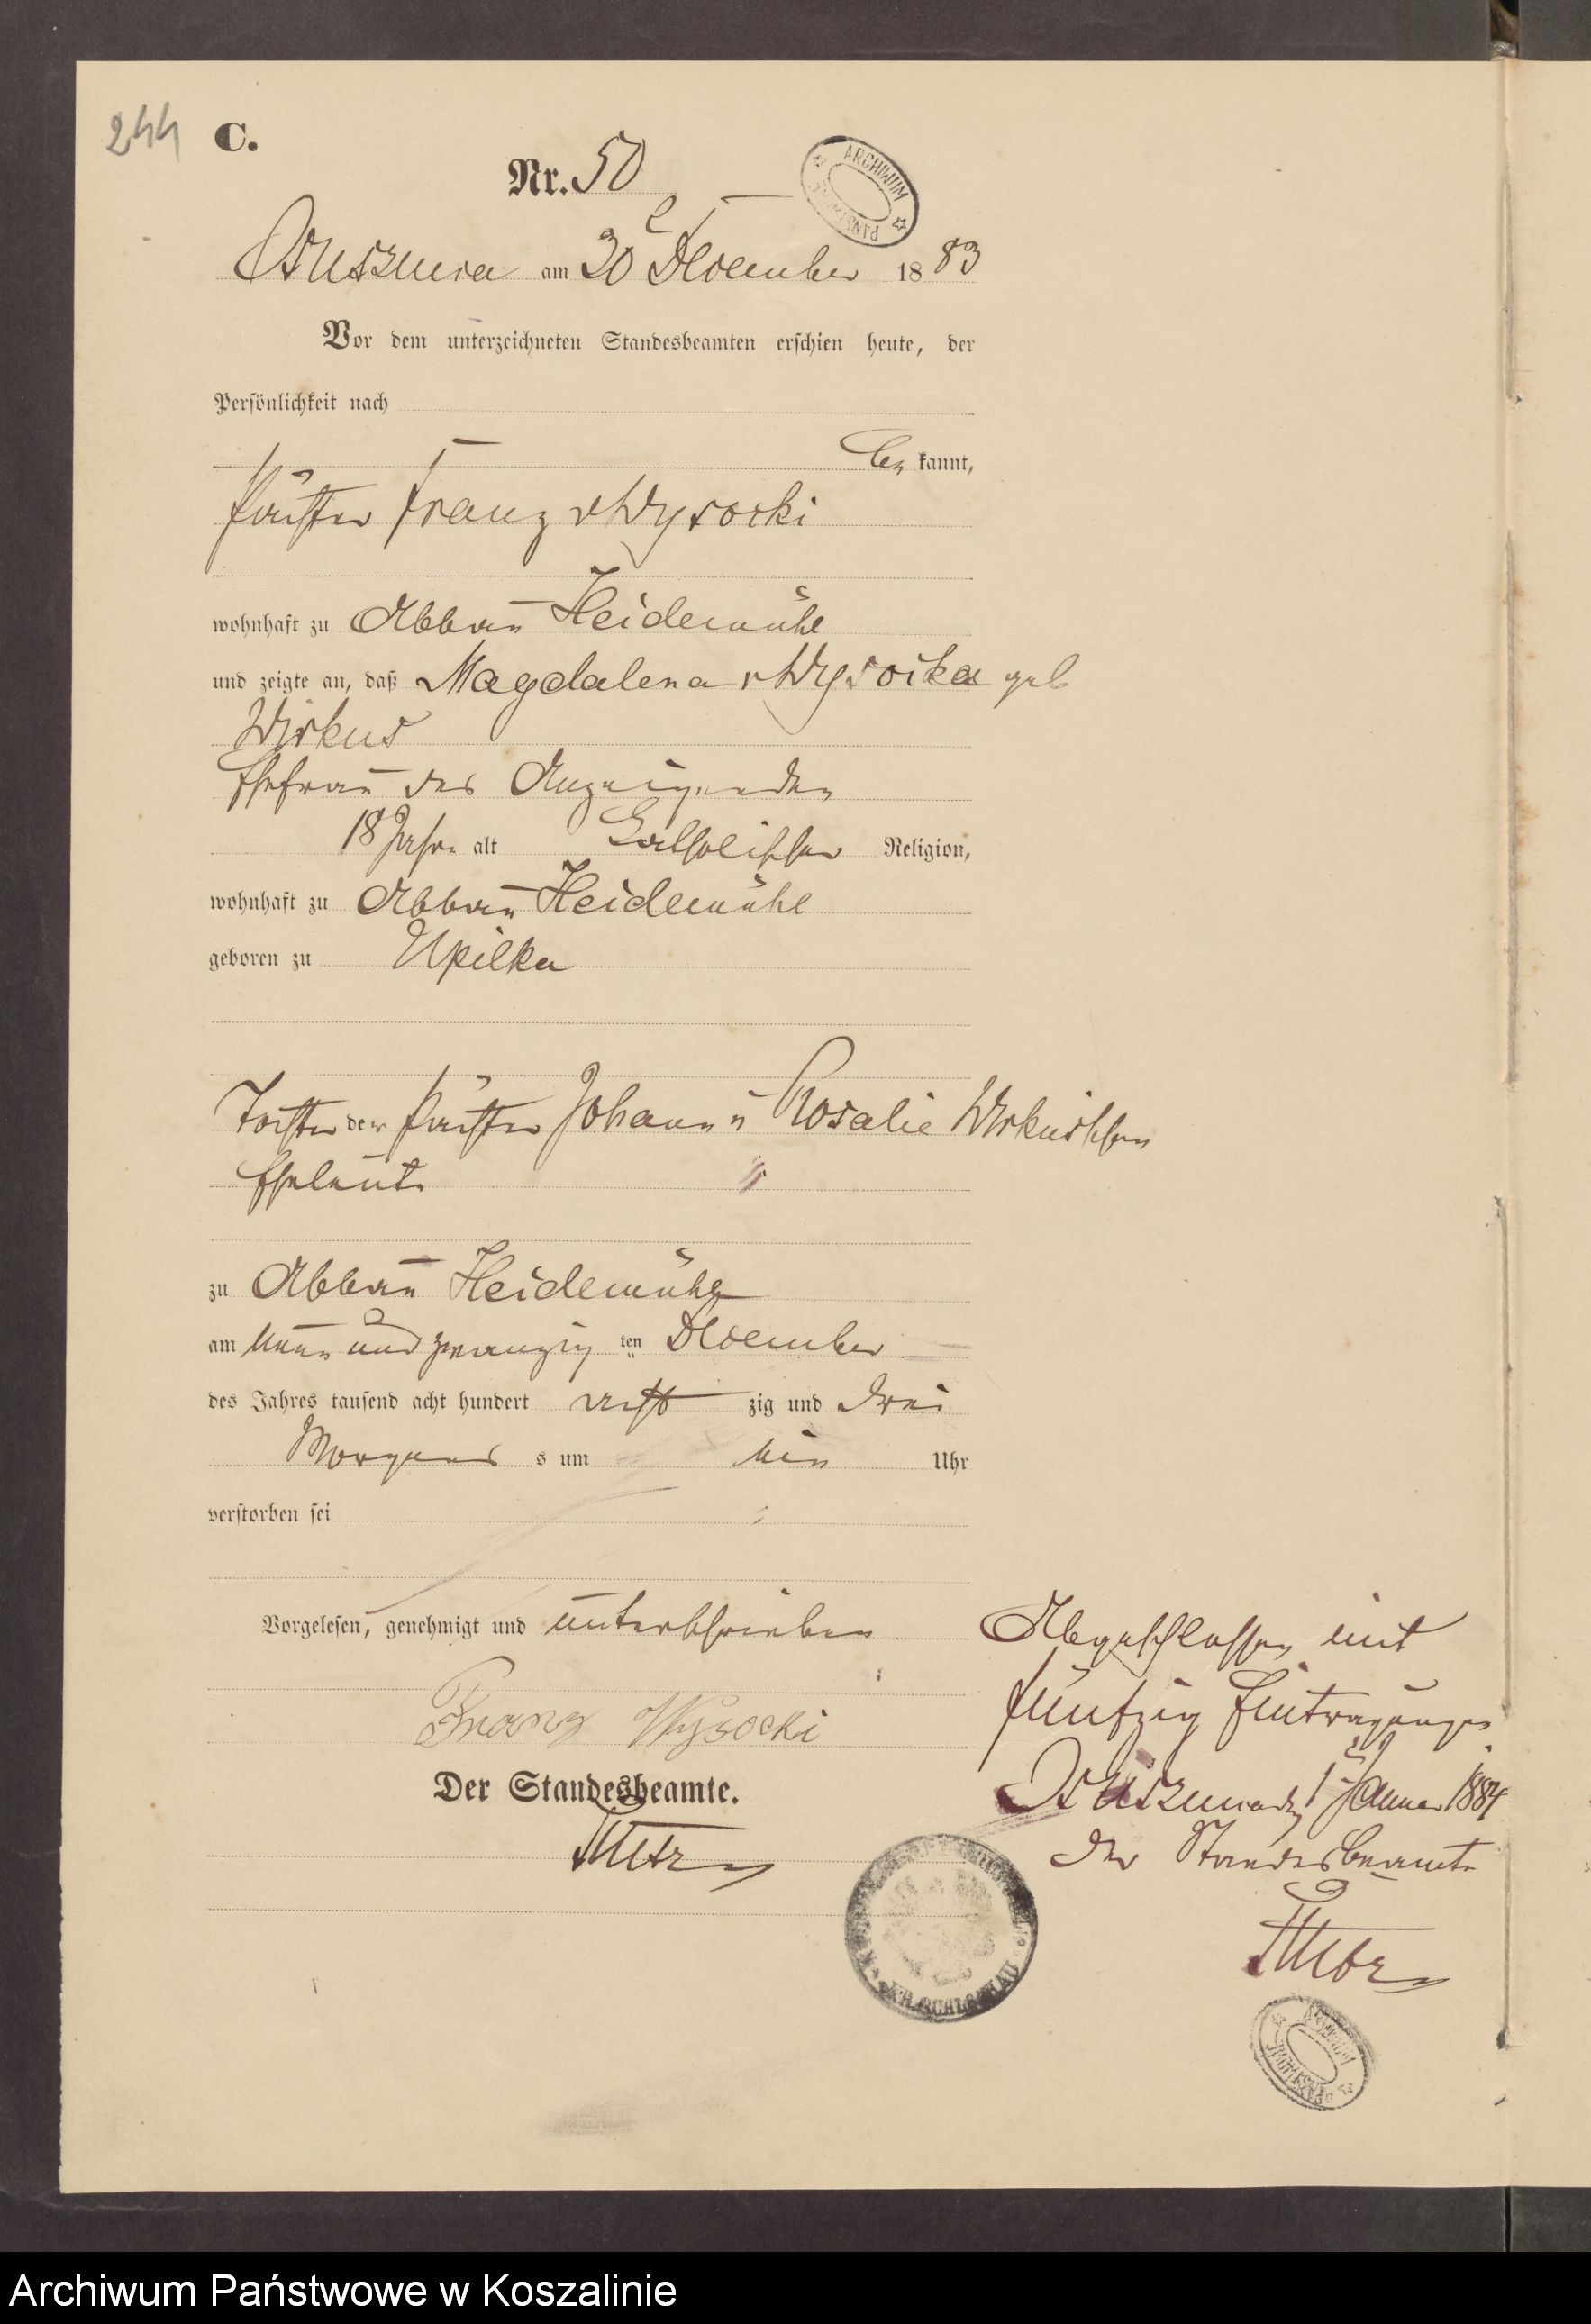 244
C.
Nr. 50
ARCHIWUM PAŃSTWOWE
Osusznica am 30 t Dezember 1883
Vor dem unterzeichneten Standesbeamten erschien heute, der
Persönlichkeit nach
be kannt,
Franz v Wysocki
wohnhaft zu Abbau Heidemühl
und zeigte an, daß Magdalena v Wysocka geb
Wirkus
Ehefrau des Anzeigenden
18 Jahre alt Katholischer Religion,
wohnhaft zu Abbau Heidemühl
geboren zu Upilka
Tochter der Johann u Rosalie Wirkusschen
Eheleute
zu Abbau Heidemühl
am neun und zwanzig ten Dezember
des Jahres tausend acht hundert acht zig und drei
Morgens s um Uhr
verstorben sei
Vorgelesen, genehmigt und unterschrieben
Franz Wysocki
Der Standesbeamte.
Abgeschlossen mit
fünfzig Eintragungen
Osusznica den 1 t Januar 1884
Der Standesbeamte
KR. SCHLOCHAU
ARCHIWUM PAŃSTWOWE
Archiwum Państwowe w Koszalinie